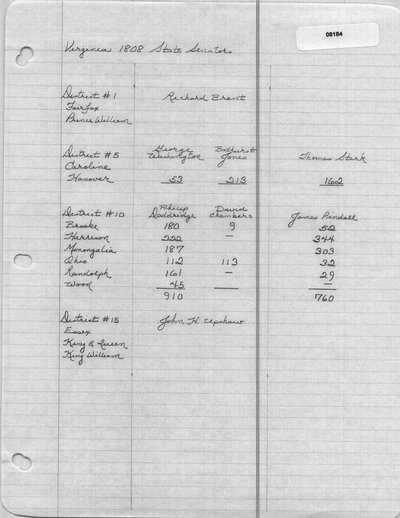 08184
Virginia 1808 State Senators
District #1 Richard Brent
Fairfax
Prince William
District #5 George Washington Bathurst Jones Thomas Stark
Caroline
Hanover 53 213 162
District #10 Philip Doddridge David Chambers James Pindall
Brooke 180 9 52
Harrison 222 — 344
Monongalia 187 303
Ohio 112 113 32
Randolph 161 — 29
Wood 45 —
910 760
District #15 John H. Upshaw
Essex
King & Queen
King William